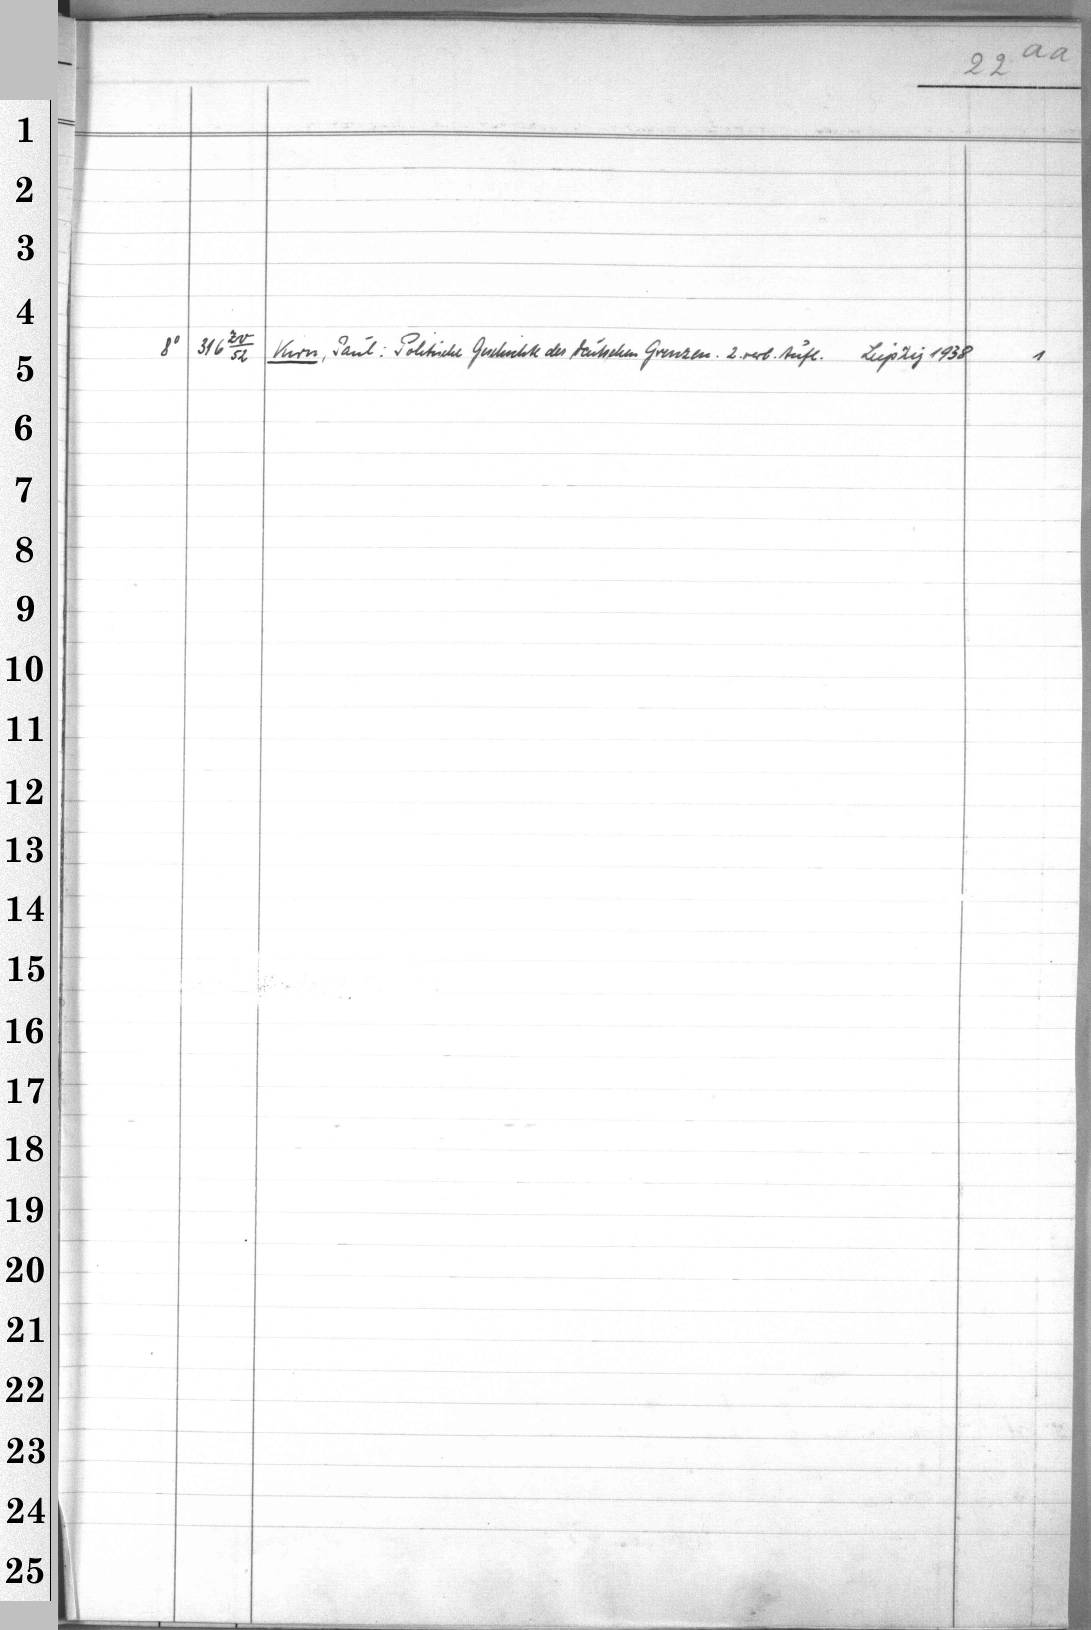 22 aa
1
2
3
4
8° 316 zv/52 Kirn, Paul: Politische Geschichte der deutschen Grenzen. 2. verb. Aufl. Leipzig 1938 1
5
6
7
8
9
10
11
12
13
14
15
16
17
18
19
20
21
22
23
24
25